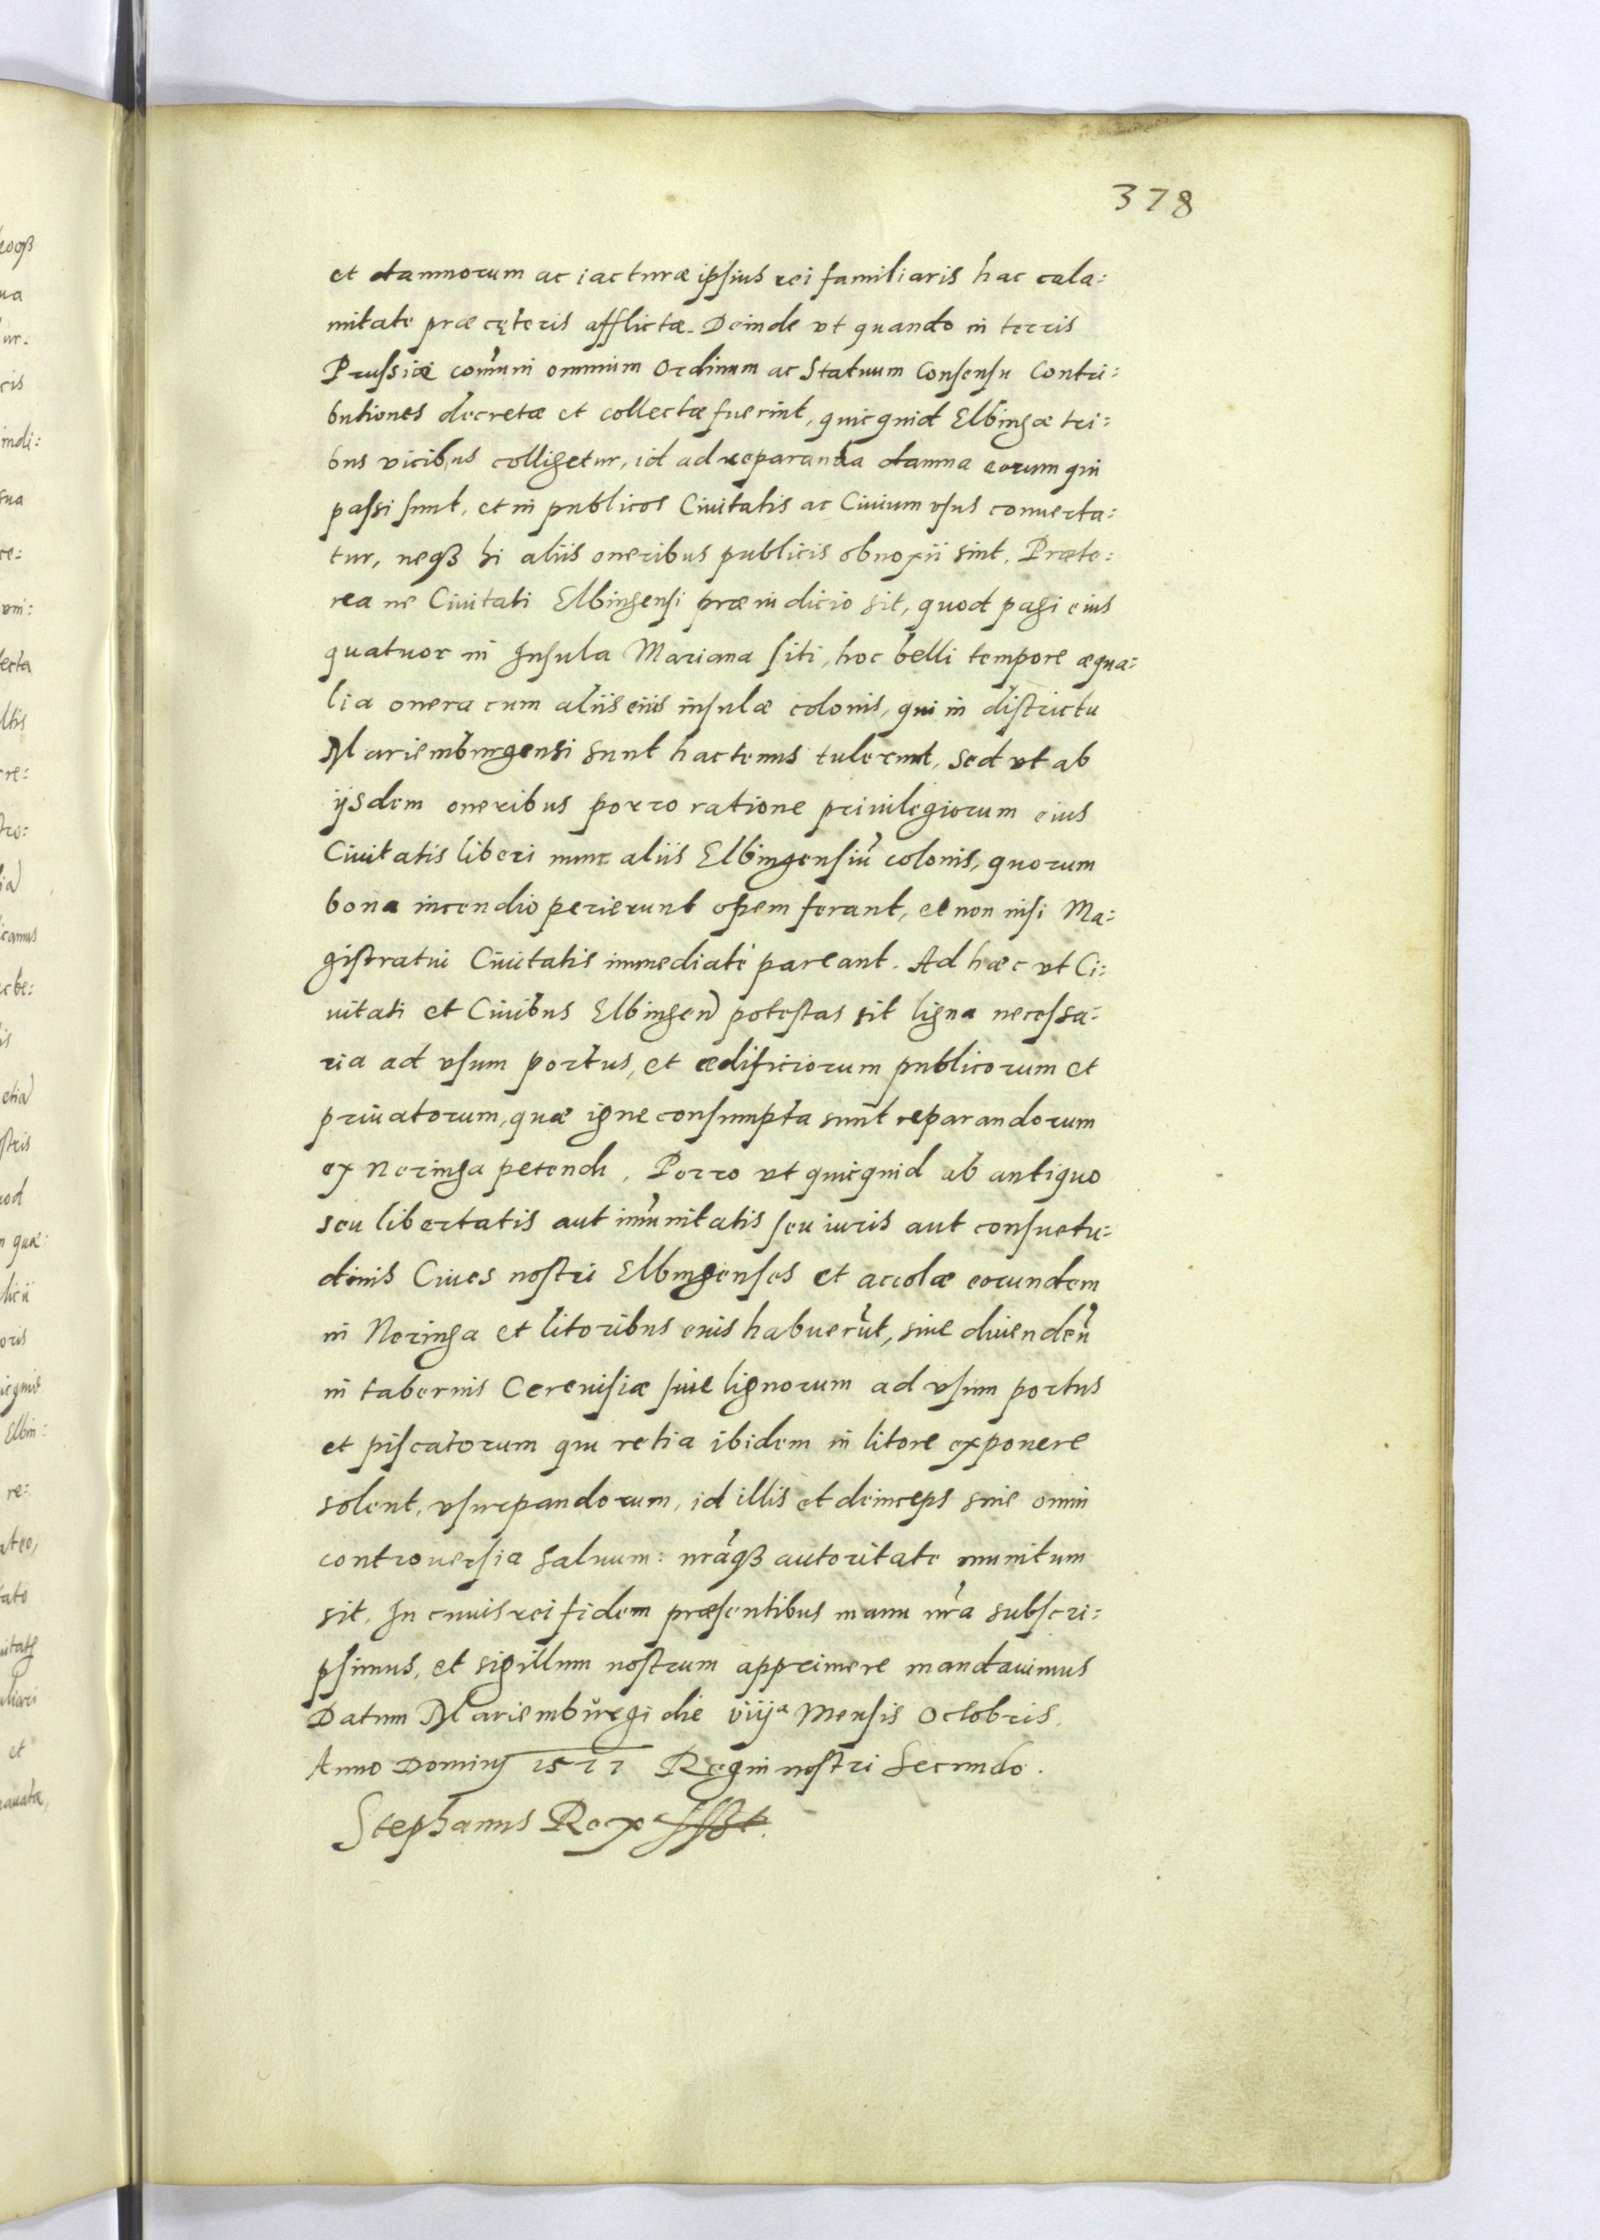 378
et damnorum ac iacturæ ipsius rei familiaris hac cala:
mitate præ cęteris afflictæ. Deinde vt quando in terris
Prussiæ com̃uni omnium Ordinum ac Statuum Consensu Contri:
butiones decretæ et collectæ fuerint, quicquid Elbingæ tri:
bus vicibus colligetur, id ad reparanda damna eorum qui
passi sunt, et in publicos Ciuitatis ac Ciuium vsus conuerta:
tur, neqꝫ hi aliis oneribus publicis obnoxii sint. Præte:
rea ne Ciuitati Elbingensi præiudicio sit, quod pagi eius
quatuor in Insula Mariana siti, hoc belli tempore æqua:
lia onera cum aliis eius insulæ colonis, qui in districtu
Mariemburgensi sunt hactenus tulerint, sed vt ab
ijsdem oneribus porro ratione priuilegiorum eius
Ciuitatis liberi nunc aliis Elbingensiũ colonis, quorum
bona incendio perierunt opem ferant, et non nisi Ma:
gistratui Ciuitatis immediatè pareant. Ad hæc vt Ci:
uitati et Ciuibus Elbingen̄ potestas sit ligna necessa:
ria ad vsum portus, et ædificiorum publicorum et
priuatorum, quæ igne consumpta sunt reparandorum
ex Neringa petendi. Porro vt quicquid ab antiquo
seu libertatis aut im̃unitatis seu iuris aut consuetu:
dinis Ciues nostri Elbingenses et accolæ eorundem
in Neringa et litoribus eius habuerũt, siue diuenden̄
in tabernis Cereuisiæ siue lignorum ad vsum portus
et piscatorum qui retia ibidem in litore exponere
solent, vsurpandorum, id illis et deinceps sine omni
controuersia saluum: nrãqꝫ autoritate munitum
sit. In cuius rei fidem præsentibus manu nr̃a subscri:
psimus, et sigillum nostrum apprimere mandauimus
Datum Mariemburgi die viijª Mensis Octobris.
Anno Dominj 1577 Regni nostri Secundo.
Stephanus Rex sst.